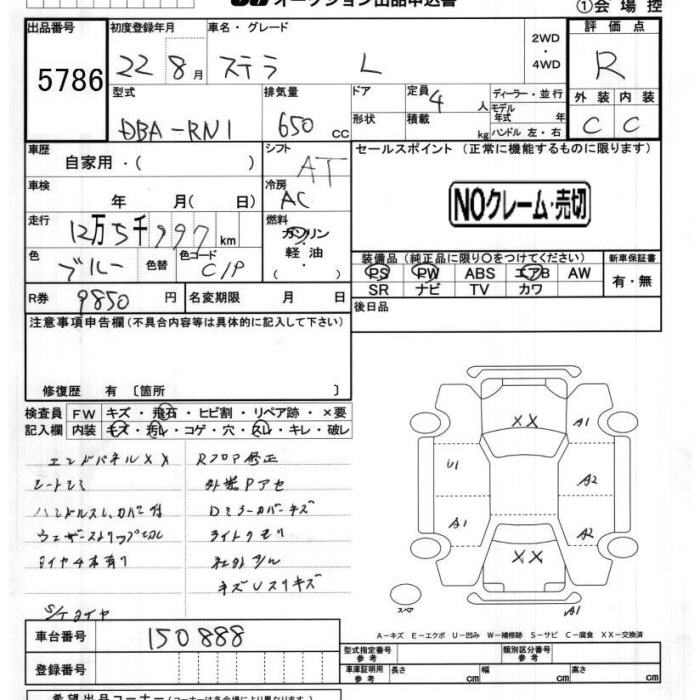 オークション出品申込書
①会場控
出品番号
5786
初度登録年月
22 8月
車名・グレード
ステラ L
2WD
・
4WD
評価点
R
型式
DBA-RN1
排気量
650 cc
ドア
形状
定員
4人
積載
kg
ディーラー・並行
モデル
年式 年
ハンドル 左・右
外装 内装
C C
車歴
自家用・( )
シフト
AT
セールスポイント (正常に機能するものに限ります)
NOクレーム・売切
車検
年 月( 日)
冷房
AC
走行
12万5千997km
燃料
ガソリン
・
軽油
( )
色
ブルー
色替
色コード
C/P
装備品 (純正品に限り○をつけてください)
新車保証書
PS PW ABS エアB AW
SR ナビ TV カワ
有・無
R券
9850円
名変期限 月 日
後日品
注意事項申告欄 (不具合内容等は具体的に記入して下さい)
修復歴 有 〔箇所 〕
検査員
記入欄
FW キズ・飛石・ヒビ割・リペア跡・×要
内装 キズ・汚レ・コゲ・穴・スレ・キレ・破レ
エンドパネルXX Rフロア修正
シートシミ
ハンドルスレ、カバー付 Dミラーカバーキズ
ウェザーストリップ切レ ライトクモリ
タイヤ4本有り
キズUスリキズ
S/Tタイヤ
XX
A1
U1
A2
A1
A2
XX
A1
スペア
A-キズ E-エクボ U-凹み W-補修跡 S-サビ C-腐食 XX-交換済
車台番号
150888
登録番号
型式指定番号
参考
類別区分番号
参考
車庫証明用
参考
長さ cm
幅 cm
高さ cm
希望出品コーナー (コーナーは各会場により異なります)